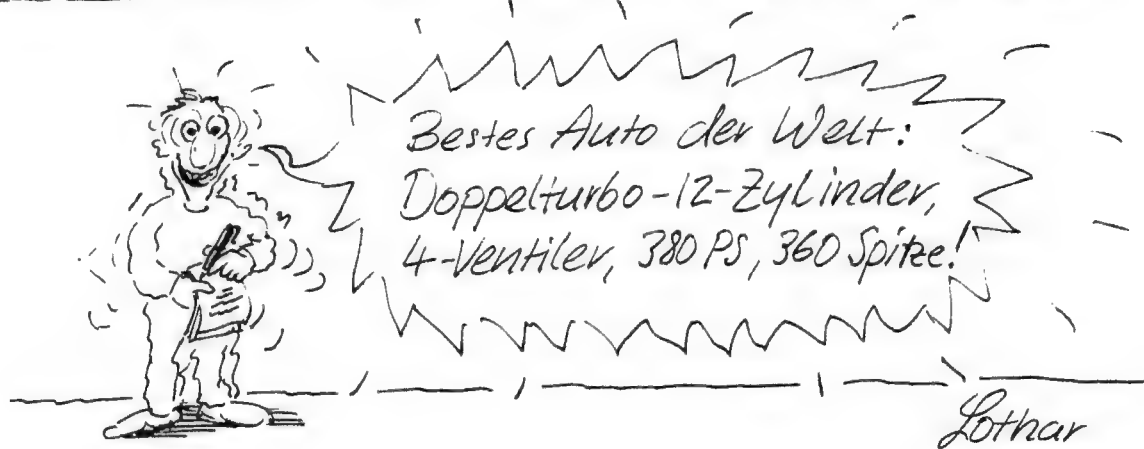 Bestes Auto der Welt:
Doppelturbo-12-Zylinder,
4-Ventiler, 380 PS, 360 Spitze!
Lothar